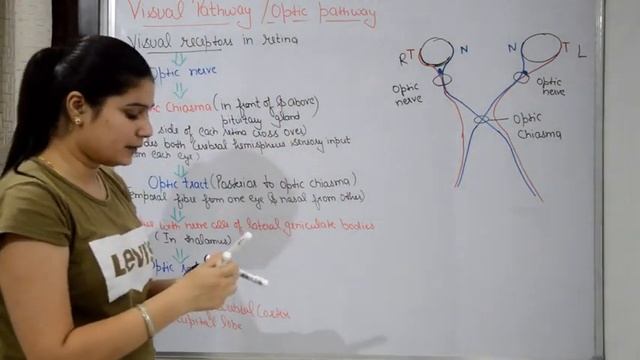 Visual Pathway / Optic pathway
Visual receptors in retina
Optic nerve
Optic Chiasma (in front of & above)
pituitary gland
side of each retina cross over)
both cerebral hemisphere sensory input
from each eye)
Optic tract (Posterior to optic chiasma)
Temporal fibre from one eye & nasal from other)
with nerve cells of lateral geniculate bodies
(In thalamus)
Optic
Cortex
lobe
R T N N T L
Optic
nerve
Optic
nerve
Optic
Chiasma
LEVI'S